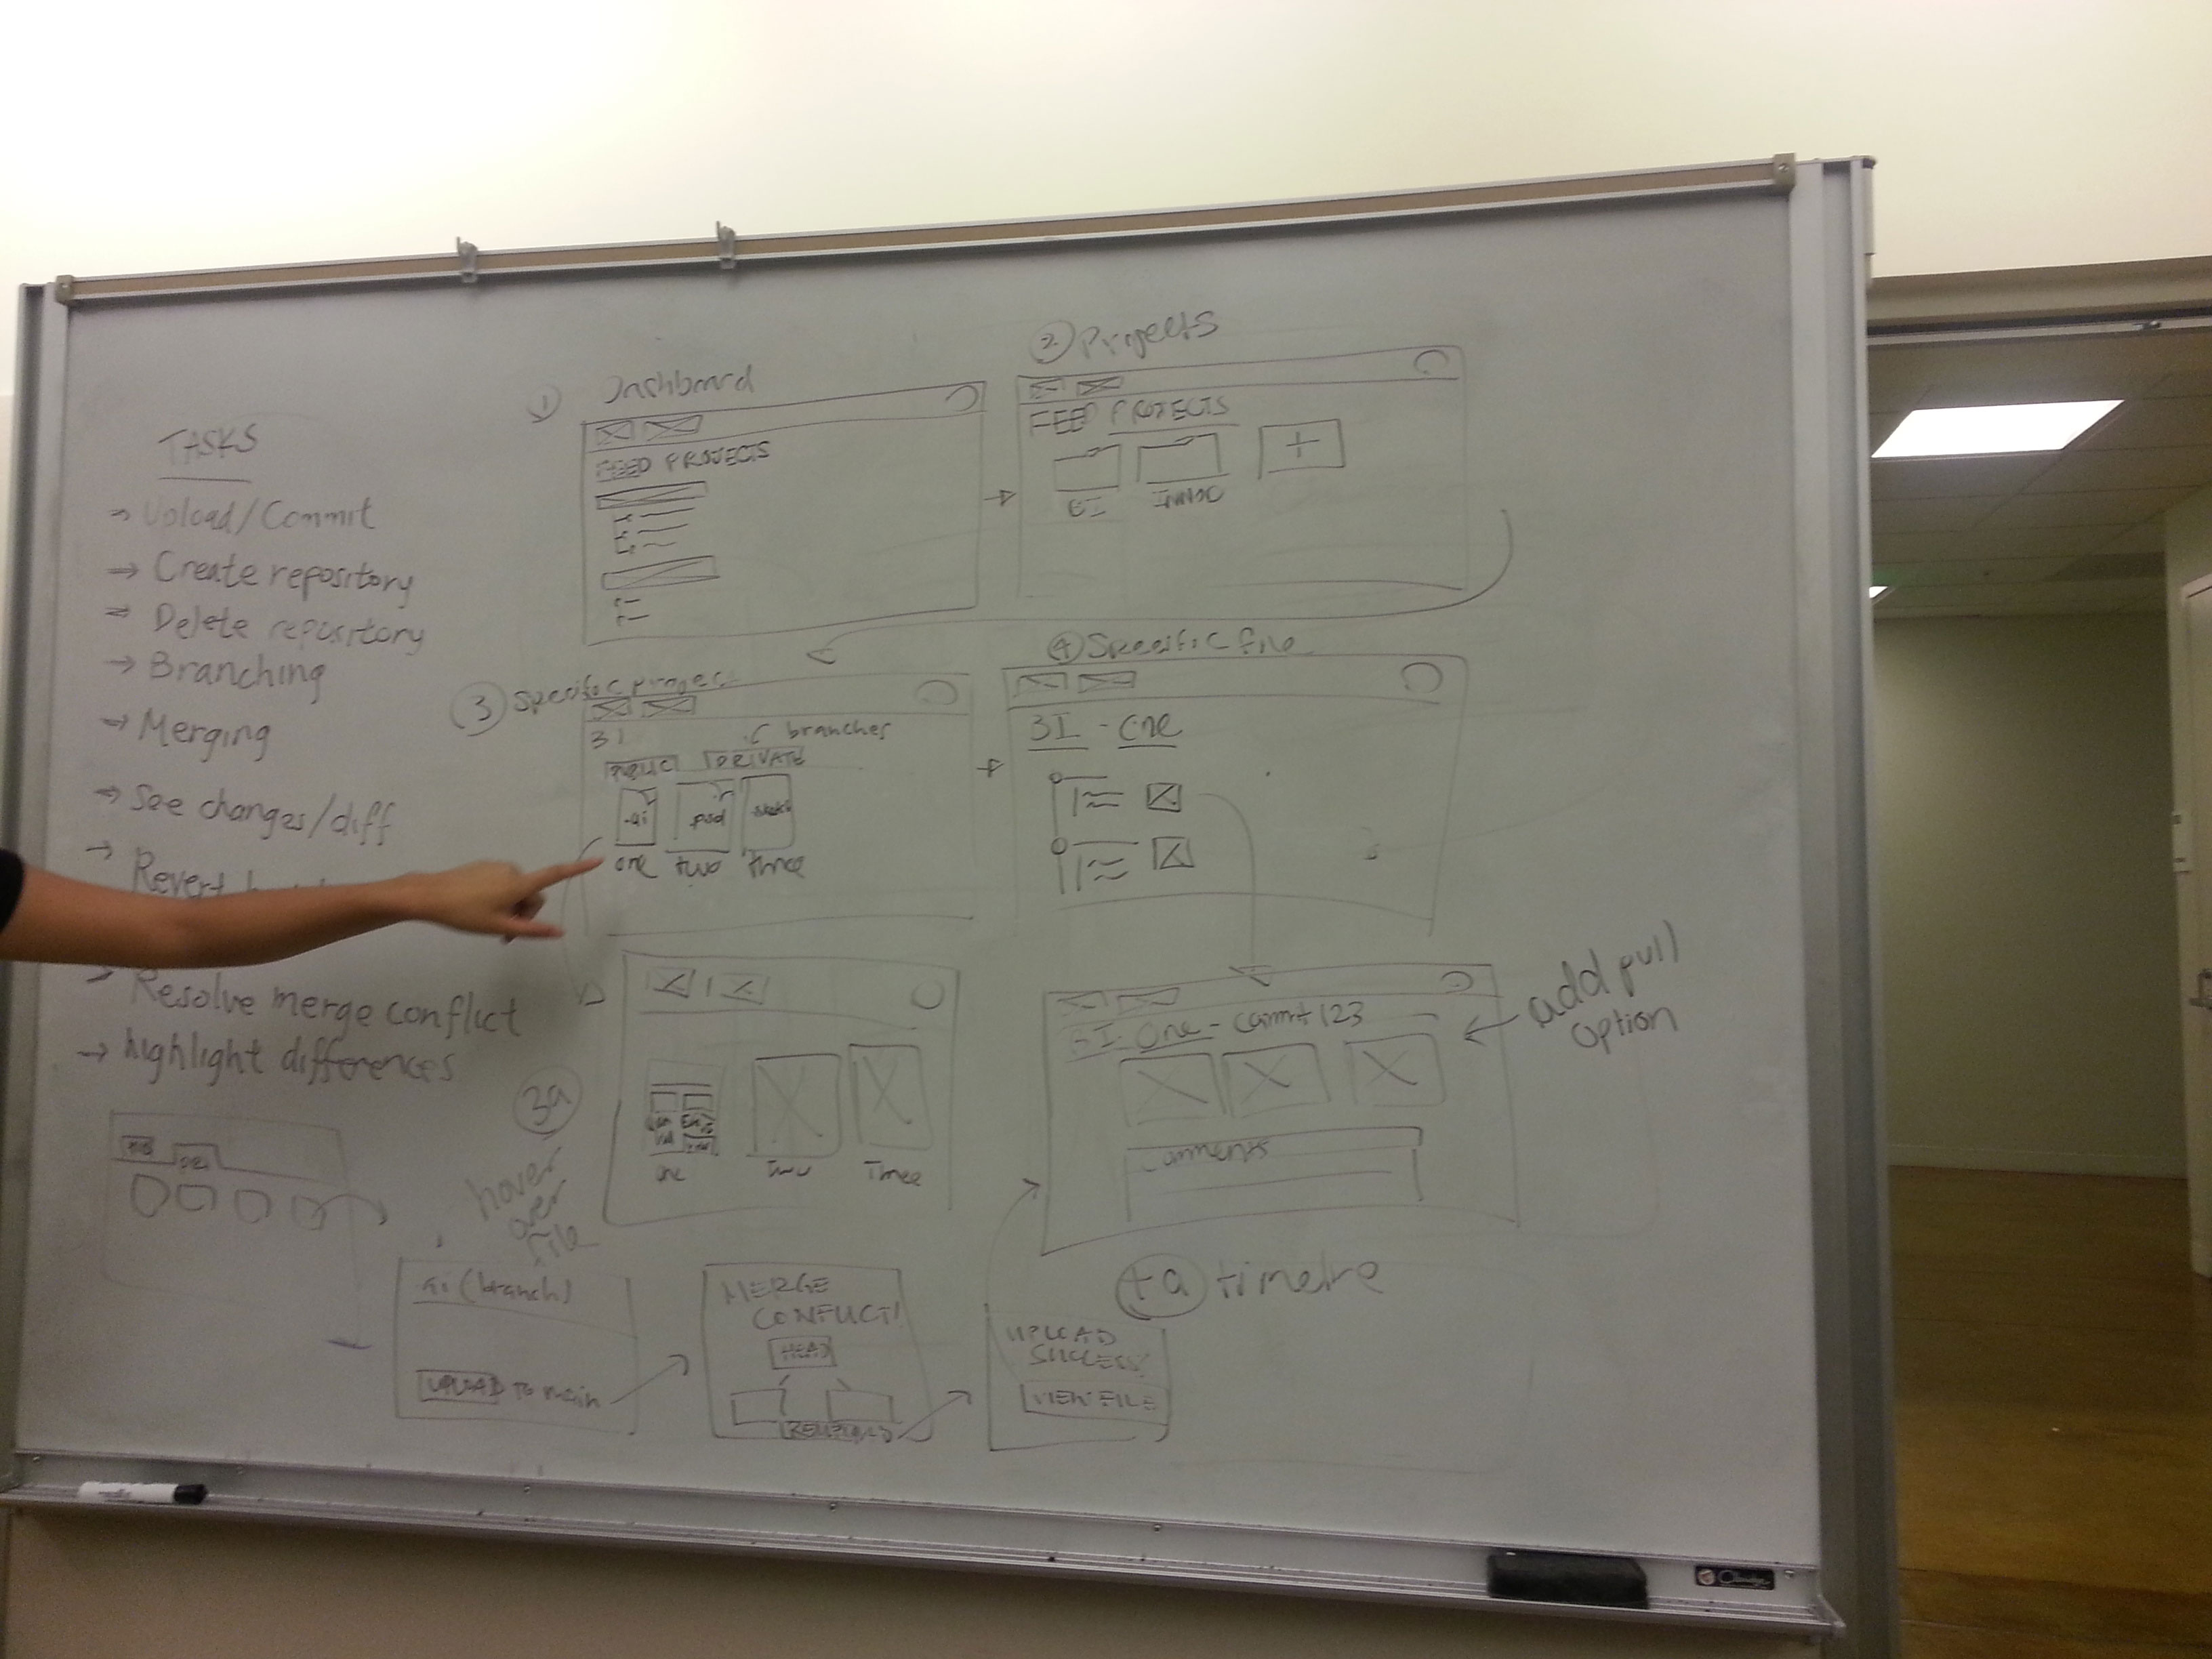 TASKS
→ Upload/Commit
→ Create repository
→ Delete repository
→ Branching
→ Merging
→ See changes/diff
→ Revert
→ Resolve merge conflict
→ highlight differences
① Dashboard
FEED PROJECTS
② Projects
FEED PROJECTS
+
③ specific project
branches
PUBLIC PRIVATE
.ai .psd
one two three
④ Specific file
3I - one
3a
hover
over
file
one Two Three
One - commit 123
comments
add pull
option
+a timeline
ai (branch)
UPLOAD TO main
MERGE
CONFLICT!
HEAD
UPLOAD
SUCCESS!
VIEW FILE